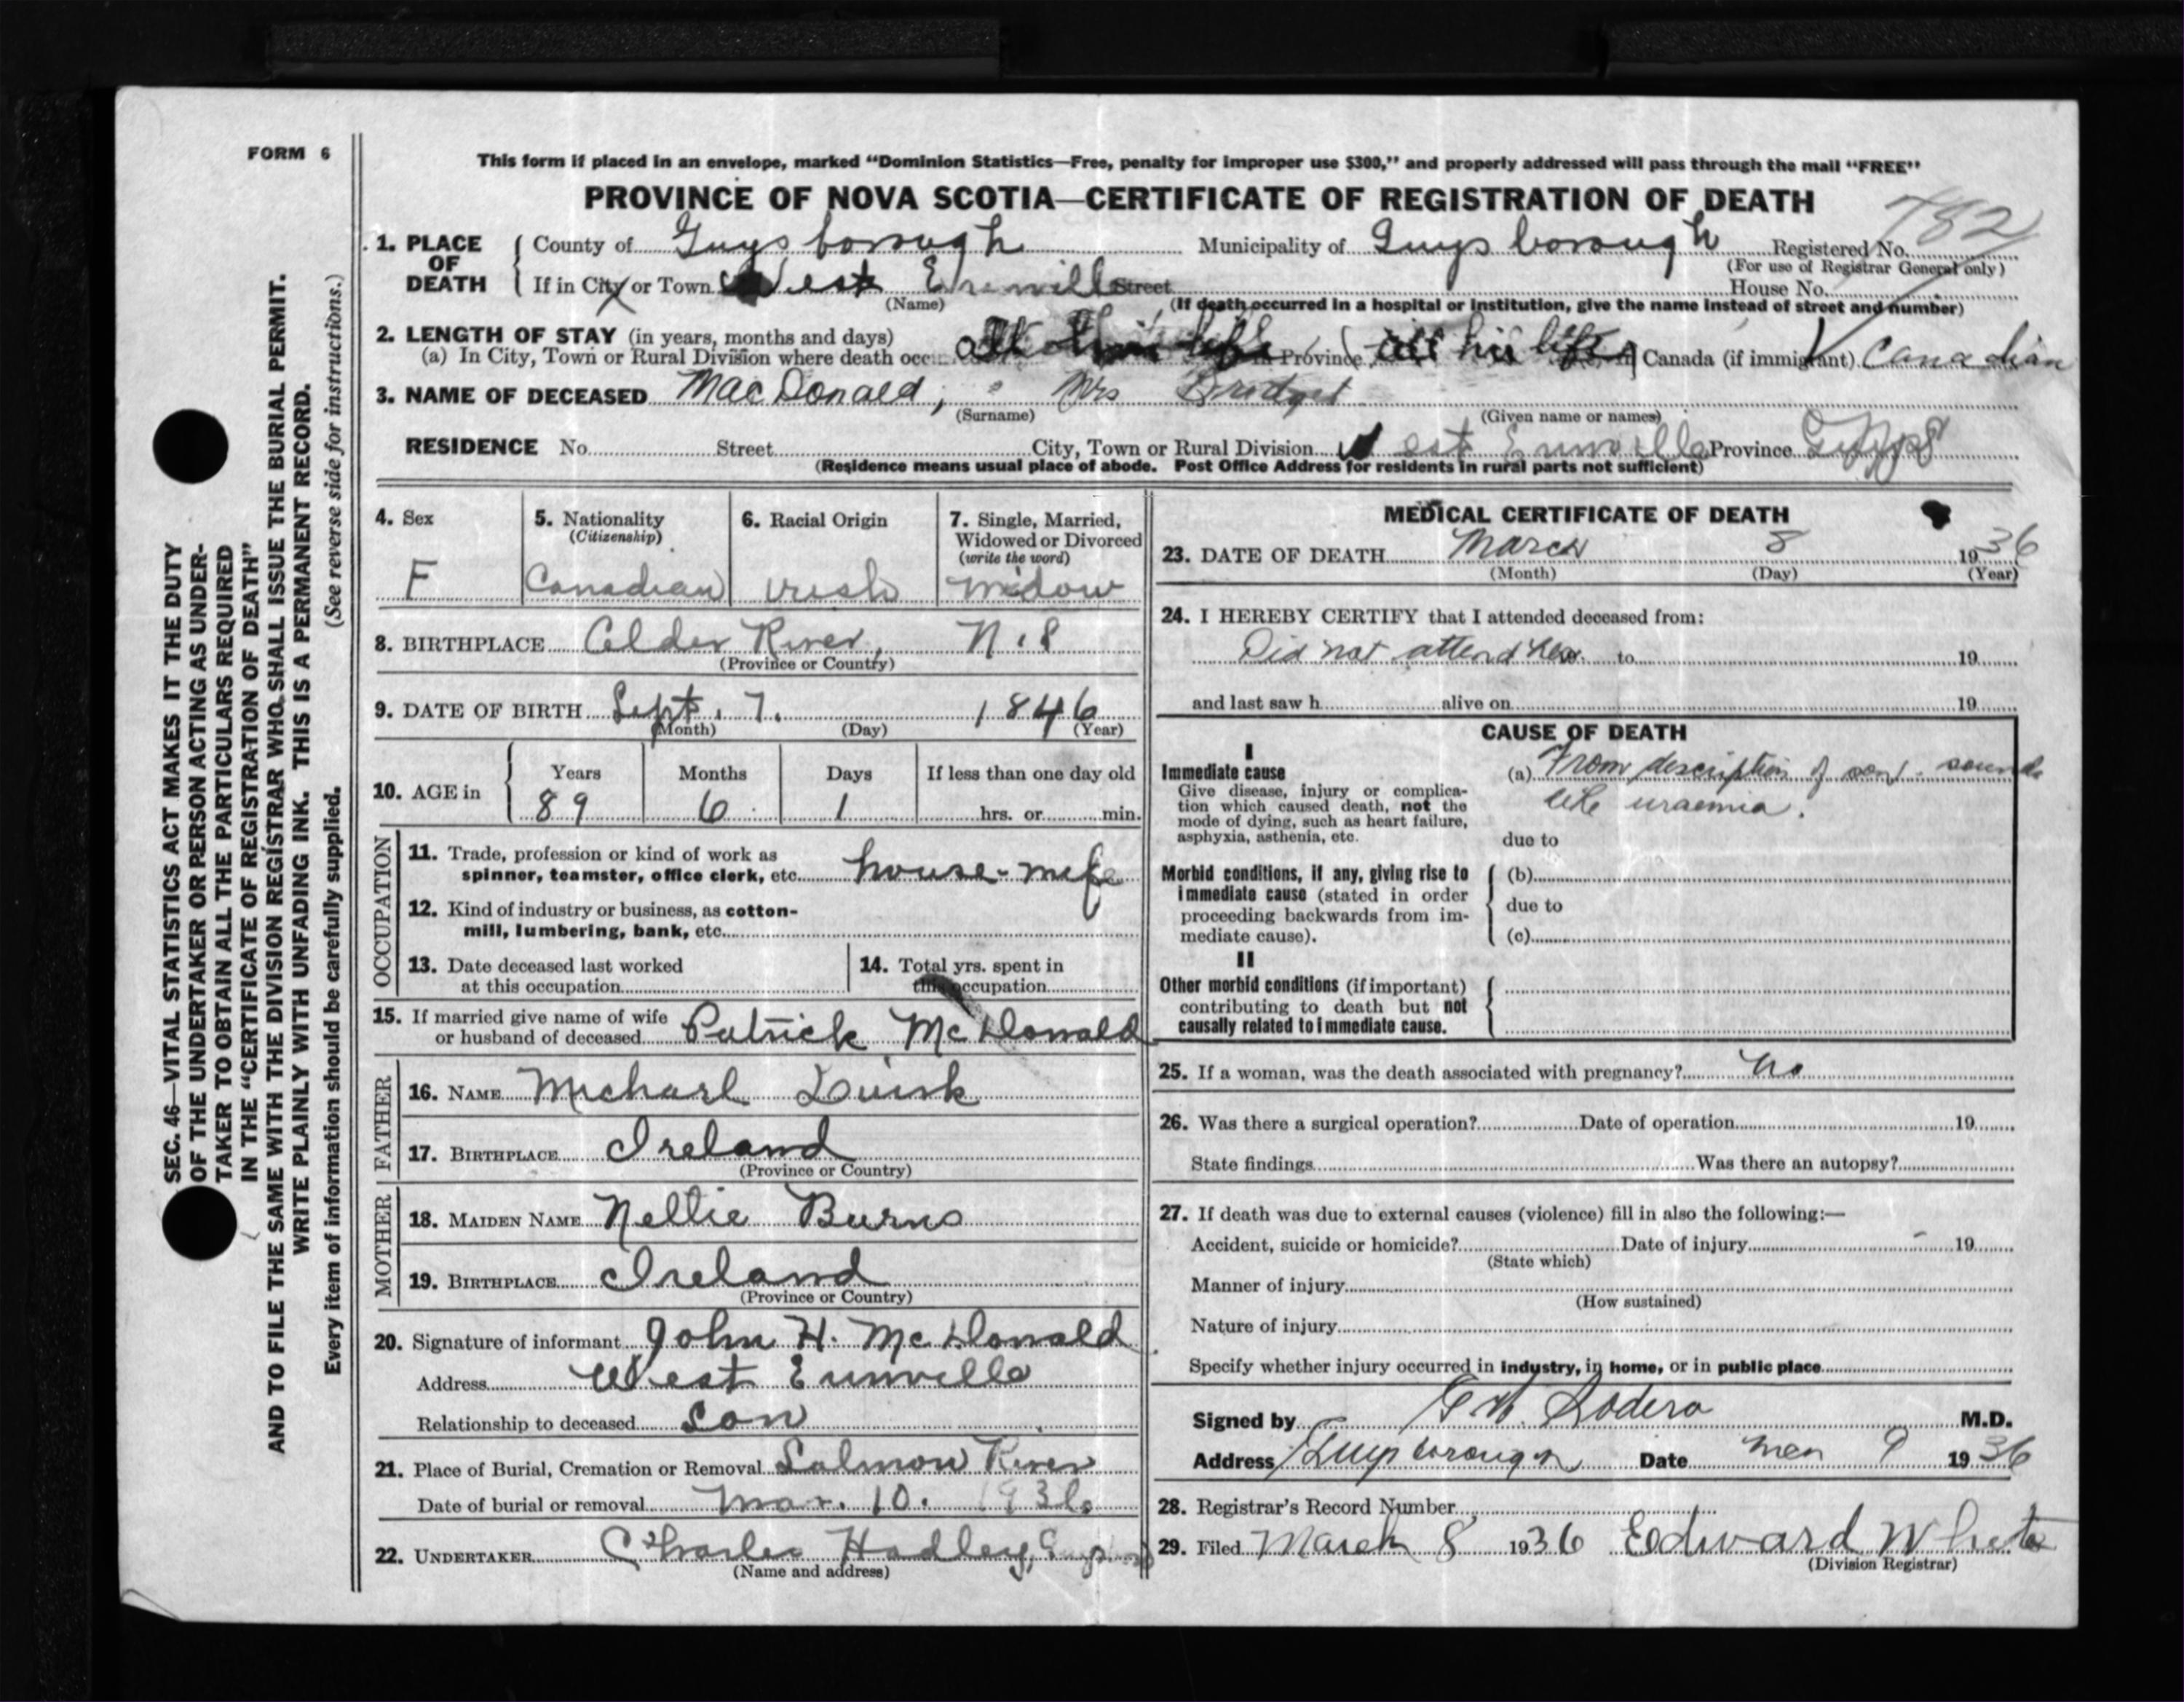 FORM 6
This form if placed in an envelope, marked “Dominion Statistics—Free, penalty for improper use $300,” and properly addressed will pass through the mail “FREE”
PROVINCE OF NOVA SCOTIA—CERTIFICATE OF REGISTRATION OF DEATH
782
1. PLACE OF DEATH { County of Guysborough Municipality of Guysborough Registered No.
(For use of Registrar General only)
If in City or Town West Erinville Street House No.
(Name) (If death occurred in a hospital or institution, give the name instead of street and number)
2. LENGTH OF STAY (in years, months and days)
(a) In City, Town or Rural Division where death occ in Province all his life in Canada (if immigrant) Canadian
3. NAME OF DECEASED MacDonald, Mrs Bridget
(Surname) (Given name or names)
RESIDENCE No. Street City, Town or Rural Division West Erinville Province
(Residence means usual place of abode. Post Office Address for residents in rural parts not sufficient)
4. Sex
F
5. Nationality
(Citizenship)
Canadian
6. Racial Origin
Irish
7. Single, Married,
Widowed or Divorced
(write the word)
Widow
8. BIRTHPLACE Alder River, N.S
(Province or Country)
9. DATE OF BIRTH Sept. 7. 1846
(Month) (Day) (Year)
10. AGE in { Years Months Days If less than one day old
89 6 1 hrs. or min.
OCCUPATION
11. Trade, profession or kind of work as
spinner, teamster, office clerk, etc. house-wife
12. Kind of industry or business, as cotton-
mill, lumbering, bank, etc.
13. Date deceased last worked
at this occupation
14. Total yrs. spent in
this occupation
15. If married give name of wife
or husband of deceased Patrick McDonald
FATHER
16. NAME Michael Quirk
17. BIRTHPLACE Ireland
(Province or Country)
MOTHER
18. MAIDEN NAME Nellie Burns
19. BIRTHPLACE Ireland
(Province or Country)
20. Signature of informant John H. McDonald
Address West Erinville
Relationship to deceased Son
21. Place of Burial, Cremation or Removal Salmon River
Date of burial or removal Mar. 10. 1936
22. UNDERTAKER Charles Hadley,
(Name and address)
MEDICAL CERTIFICATE OF DEATH
23. DATE OF DEATH March 8 1936
(Month) (Day) (Year)
24. I HEREBY CERTIFY that I attended deceased from:
Did not attend her to 19
and last saw h alive on 19
CAUSE OF DEATH
I
Immediate cause
Give disease, injury or complica-
tion which caused death, not the
mode of dying, such as heart failure,
asphyxia, asthenia, etc.
(a) From description of son. sounds
like uraemia.
due to
Morbid conditions, if any, giving rise to
immediate cause (stated in order
proceeding backwards from im-
mediate cause).
(b)
due to
(c)
II
Other morbid conditions (if important)
contributing to death but not
causally related to immediate cause.
25. If a woman, was the death associated with pregnancy? No
26. Was there a surgical operation? Date of operation 19
State findings Was there an autopsy?
27. If death was due to external causes (violence) fill in also the following:—
Accident, suicide or homicide? Date of injury 19
(State which)
Manner of injury
(How sustained)
Nature of injury
Specify whether injury occurred in industry, in home, or in public place
Signed by M.D.
Address Guysborough Date Mar 9 1936
28. Registrar's Record Number
29. Filed March 8 1936 Edward White
(Division Registrar)
SEC. 46—VITAL STATISTICS ACT MAKES IT THE DUTY
OF THE UNDERTAKER OR PERSON ACTING AS UNDER-
TAKER TO OBTAIN ALL THE PARTICULARS REQUIRED
IN THE “CERTIFICATE OF REGISTRATION OF DEATH”
AND TO FILE THE SAME WITH THE DIVISION REGISTRAR WHO SHALL ISSUE THE BURIAL PERMIT.
WRITE PLAINLY WITH UNFADING INK. THIS IS A PERMANENT RECORD.
Every item of information should be carefully supplied. (See reverse side for instructions.)